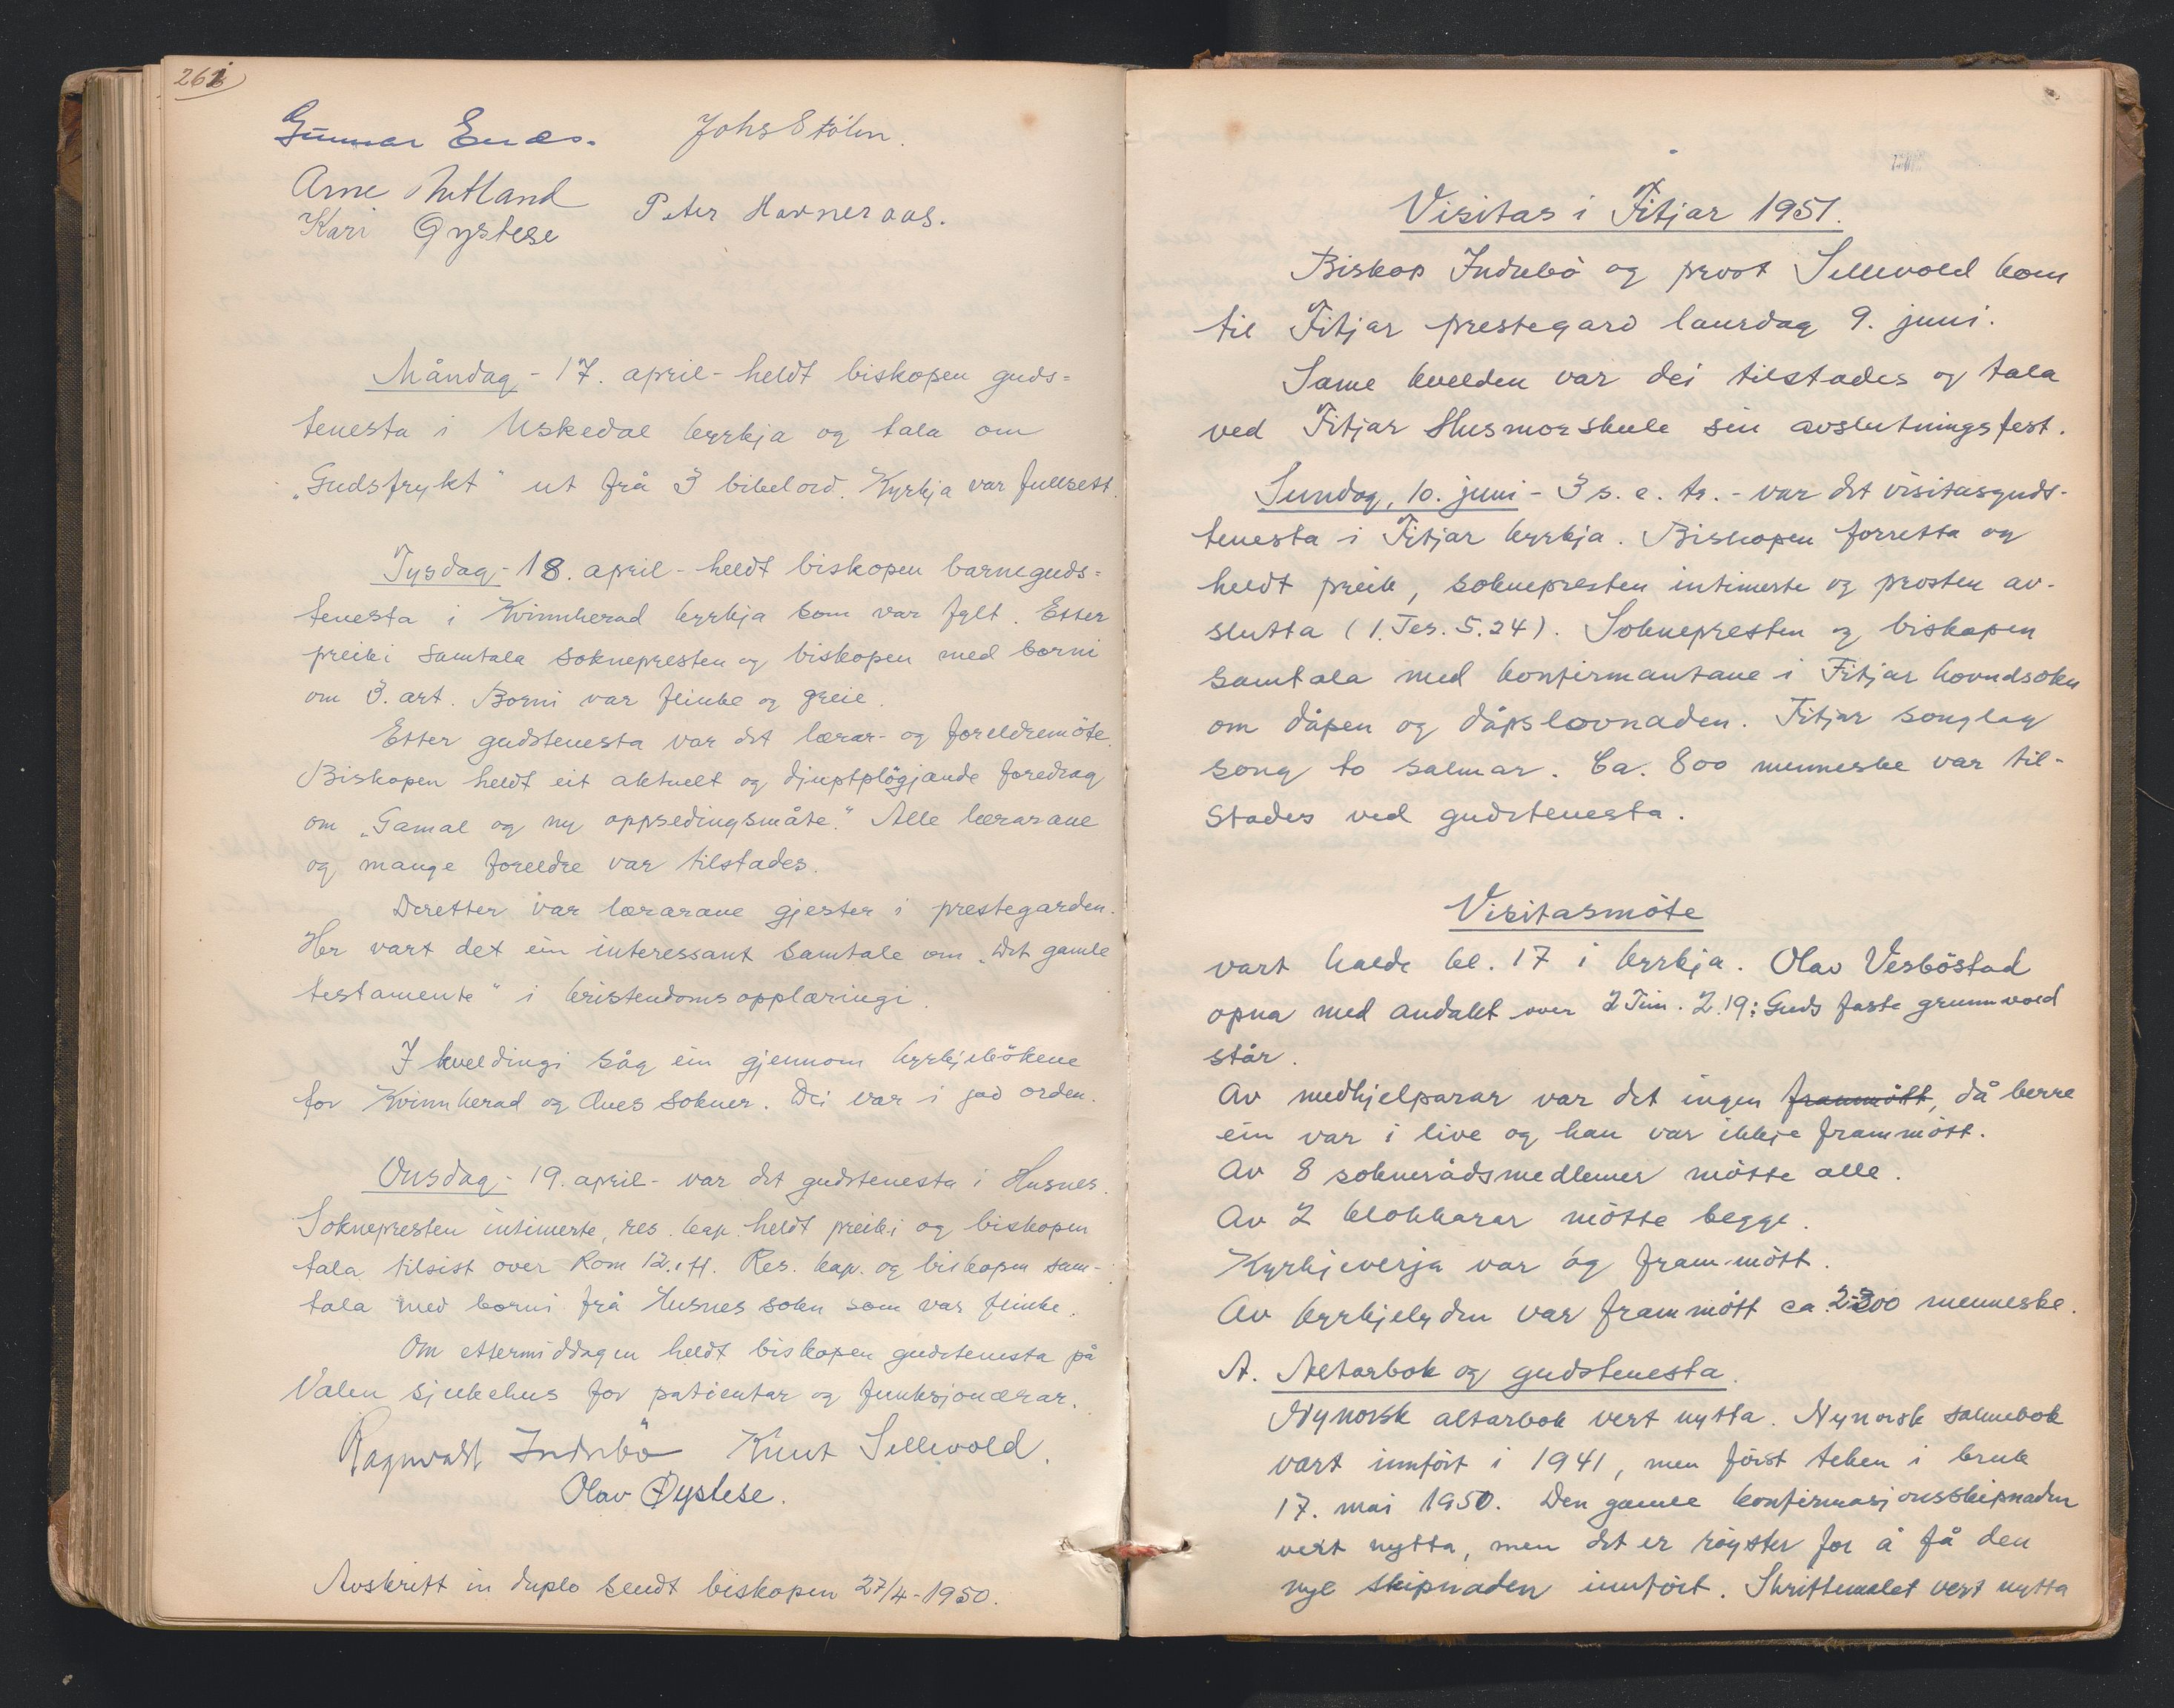 261
Gunnar Enes. Johs Stølen.
Arne Thetland
Kari Øystese Peter Havneraas.
Måndag - 17. april - heldt biskopen guds=
tenesta i Uskedal kyrkja og tala om
„Gudsfrykt" ut frå 3 bibelord. Kyrkja var fullsett.
Tysdag - 18. april - heldt biskopen barneguds=
tenesta i Kvinnherad kyrkja som var fylt. Etter
preiki samtala soknepresten og biskopen med borni
om 3. art. Borni var flinke og greie.
Etter gudstenesta var det lærar- og foreldremöte.
Biskopen heldt eit aktuelt og djuptplögjande foredrag
om „Gamal og ny oppsedingsmåte." Alle lærarane
og mange foreldre var tilstades.
Deretter var lærarane gjester i prestegarden.
Her vart det ein interessant samtale om „Det gamle
testamente" i kristendomsopplæringi.
I kveldingi såg ein gjennom kyrkjebökene
for Kvinnherad og Ænes sokner. Dei var i god orden.
Onsdag - 19. april - var det gudstenesta i Husnes.
Soknepresten intimerte, res. kap. heldt preiki og biskopen
tala tilsist over Rom 12.1 ff. Res. kap. og biskopen sam-
tala med borni frå Husnes sokn som var flinke.
Om ettermiddagen heldt biskopen gudstenesta på
Valen sjukehus for patientar og funksjonærar.
Ragnvald Indrebö Knut Sellevold.
Olav Øystese.
Avskrift in duplo sendt biskopen 27/4-1950.
Visitas i Fitjar 1951.
Biskop Indrebö og prost Sellevold kom
til Fitjar prestegard laurdag 9. juni.
Same kvelden var dei tilstades og tala
ved Fitjar Husmorskule sin avslutningsfest.
Sundag, 10. juni - 3 s. e. tr. - var det visitasguds-
tenesta i Fitjar kyrkja. Biskopen forretta og
heldt preik, soknepresten intimerte og prosten av-
slutta (1. Tes. 5.24). Soknepresten og biskopen
samtala med konfirmantane i Fitjar hovudsokn
om dåpen og dåpslovnaden. Fitjar songlag
song to salmar. Ca. 800 menneske var til-
stades ved gudstenesta.
Visitasmöte
vart halde kl. 17 i kyrkja. Olav Vesböstad
opna med andakt over 2 Tim. 2.19: Guds faste grunnvoll
står.
Av medhjelparar var det ingen frammött, då berre
ein var i live og han var ikkje frammött.
Av 8 soknerådsmedlemer mötte alle.
Av 2 klokkarar mötte begge.
Kyrkjeverja var óg fram-mött.
Av kyrkjelyden var frammött ca. 2-300 menneske.
A. Altarbok og gudstenesta.
Nynorsk altarbok vert nytta. Nynorsk salmebok
vart innfört i 1941, men först teken i bruk
17. mai 1950. Den gamle konfirmasjonsskipnaden
vert nytta, men det er röyster for å få den
nye skipnaden innfört. Skriftemalet vert nytta